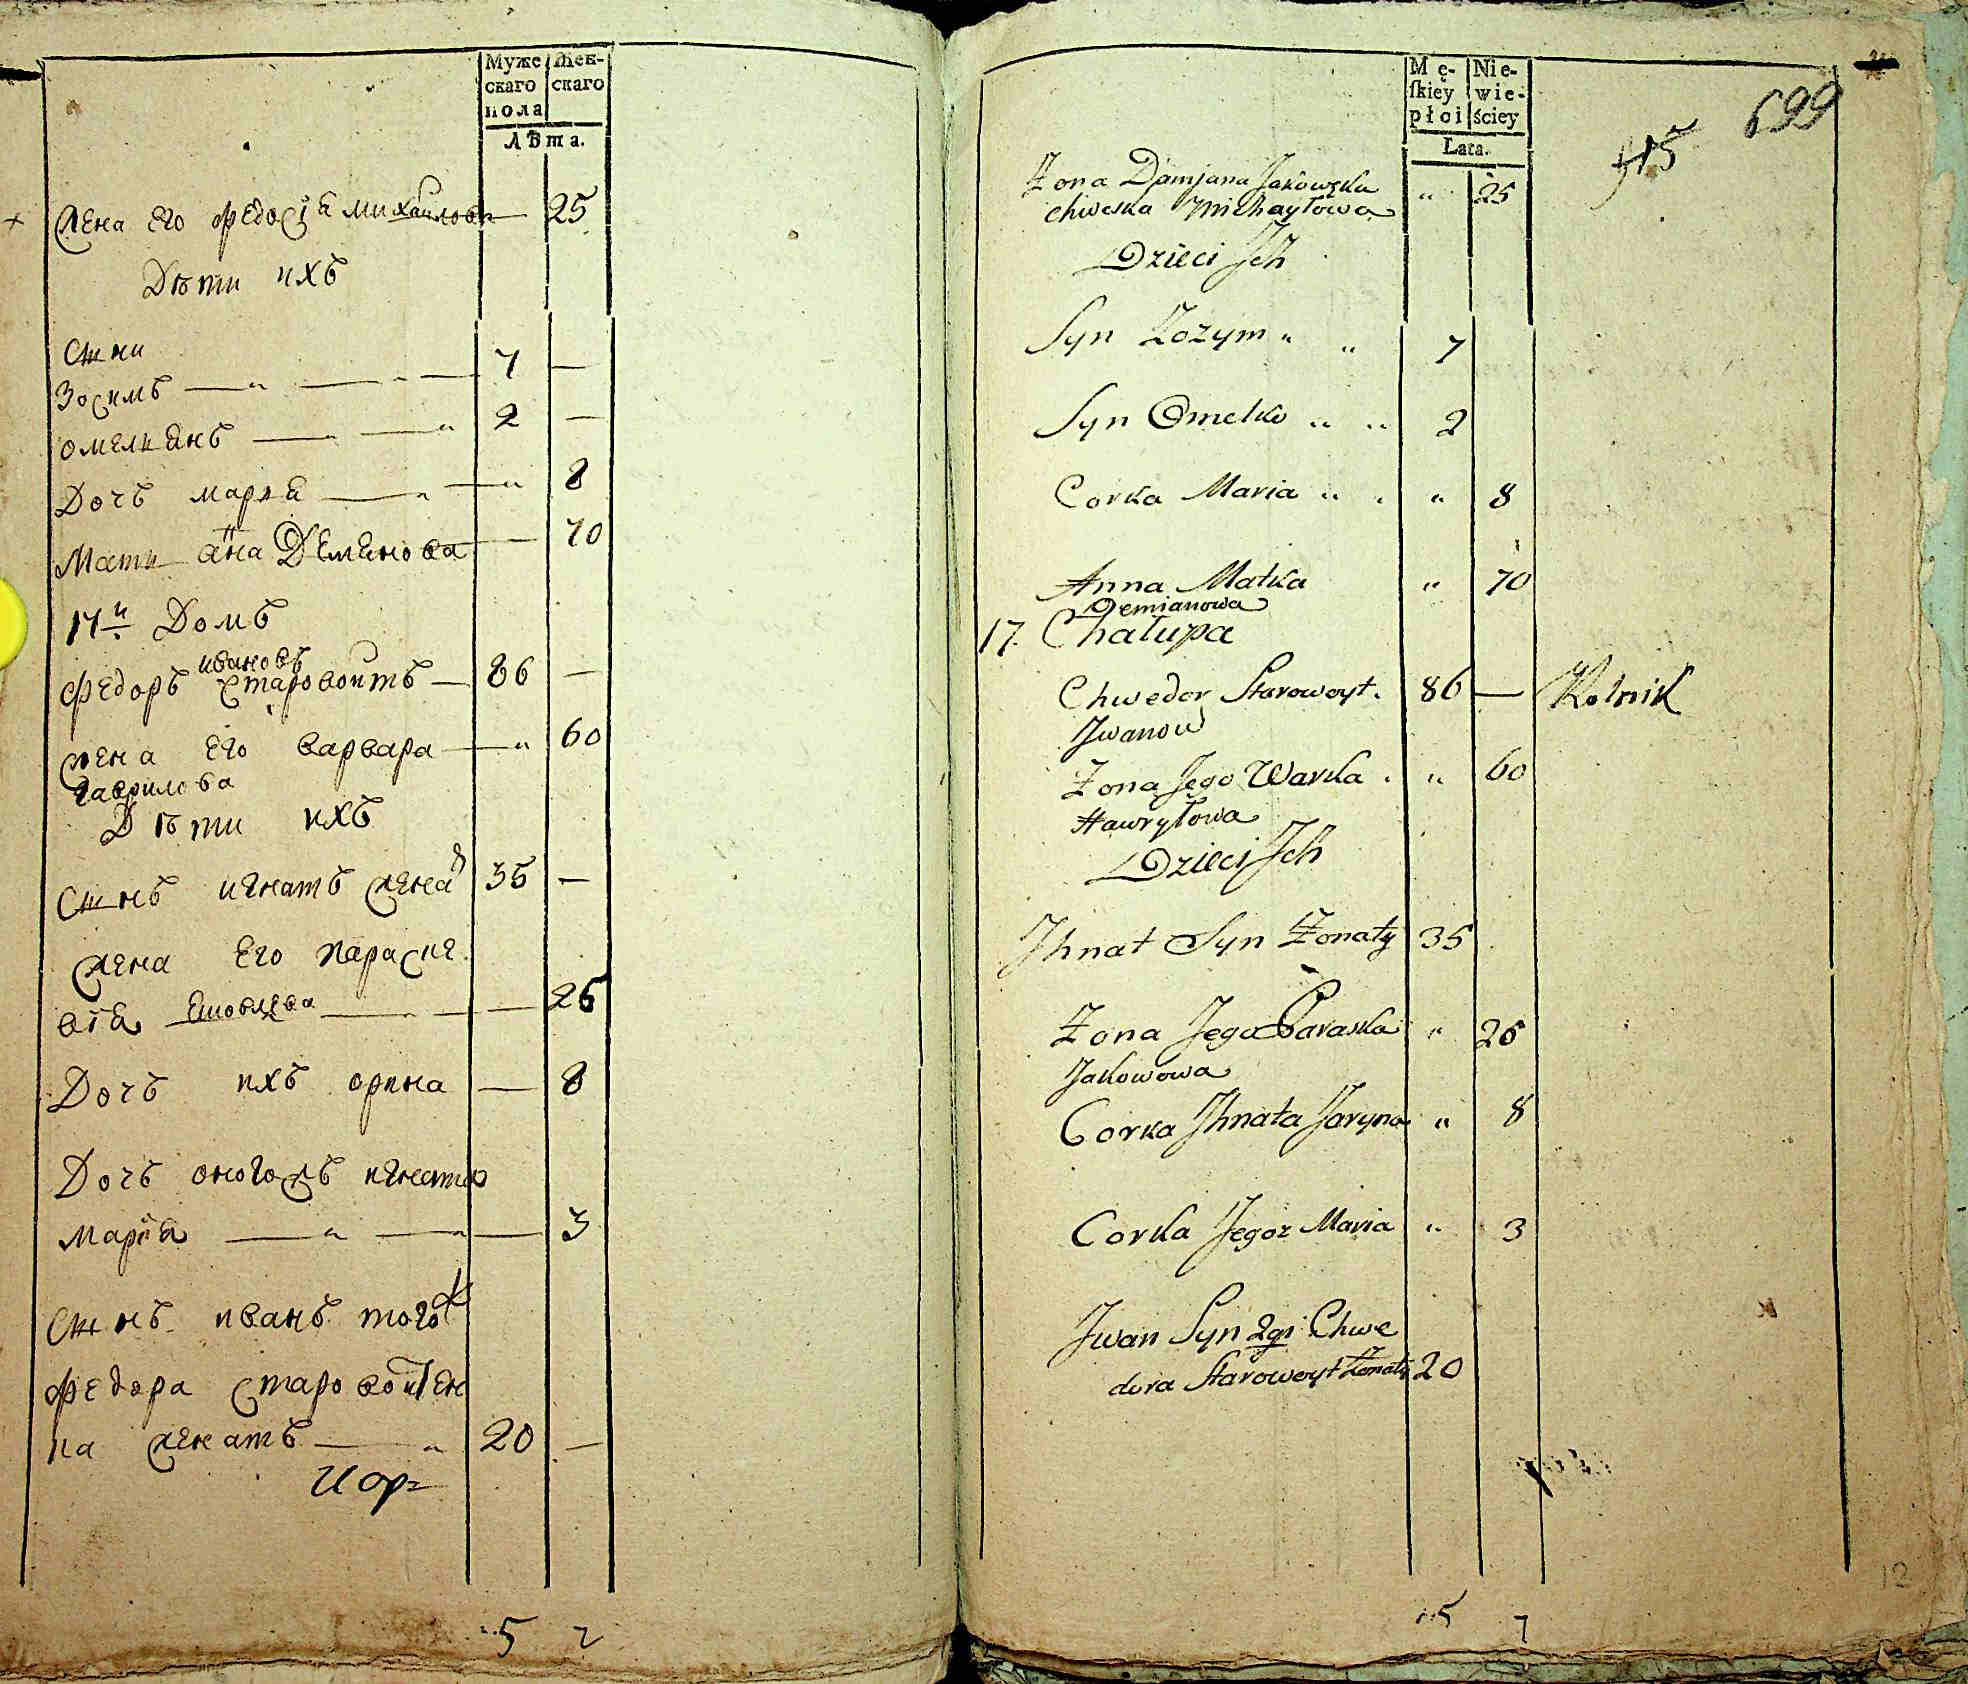 Муже
скаго
пола
Жен-
скаго
Лѣта.
жена его федосїа михаилова 25
Дѣти ихъ
Сыни
Зосимъ — „ — „ — 7 —
омелианъ — „ — „ 2 —
Дочъ мариа — „ — „ 8
Мати анна Деменова — 70
17й Домъ
ивановъ
Федоръ старовоитъ — 86 —
жена его варвара — „ 60
гаврилова
Дѣти ихъ
Сынъ игнатъ жена 35 —
жена его параске
віа — — 26
Дочъ ихъ орина — 8
Дочъ оногожъ игната
Мариа — „ — „ — 3
Сынъ иванъ тогож
федора старовоитен
ка женатъ — „ 20 —
Иор=
5 7
Mę-
ſkiey
płci
Nie-
wie-
ściey
Lata.
415
699
Żona Djamjana Jakowęka
chweska Michayłowa „ 25
Dzieci Jch
Syn Zozym „ „ 7
Syn Omelko „ „ 2
Corka Maria „ „ „ 8
Anna Matka „ 70
Demianowa
17. Chałupa
Chwedor Starowoyt. 86 — Rolnik
Jwanow
Żona Jego Warka „ „ 60
Hawryłowa
Dzieci Jch
Jhnat Syn Żonaty 35
Żona Jego Paraska „ 26
Jakowowa
Corka Jhnata Jaryna „ 8
Corka Jegoż Maria „ 3
Jwan Syn 2gi Chwe
dora Starowoyt Żonaty 20
5 7
12